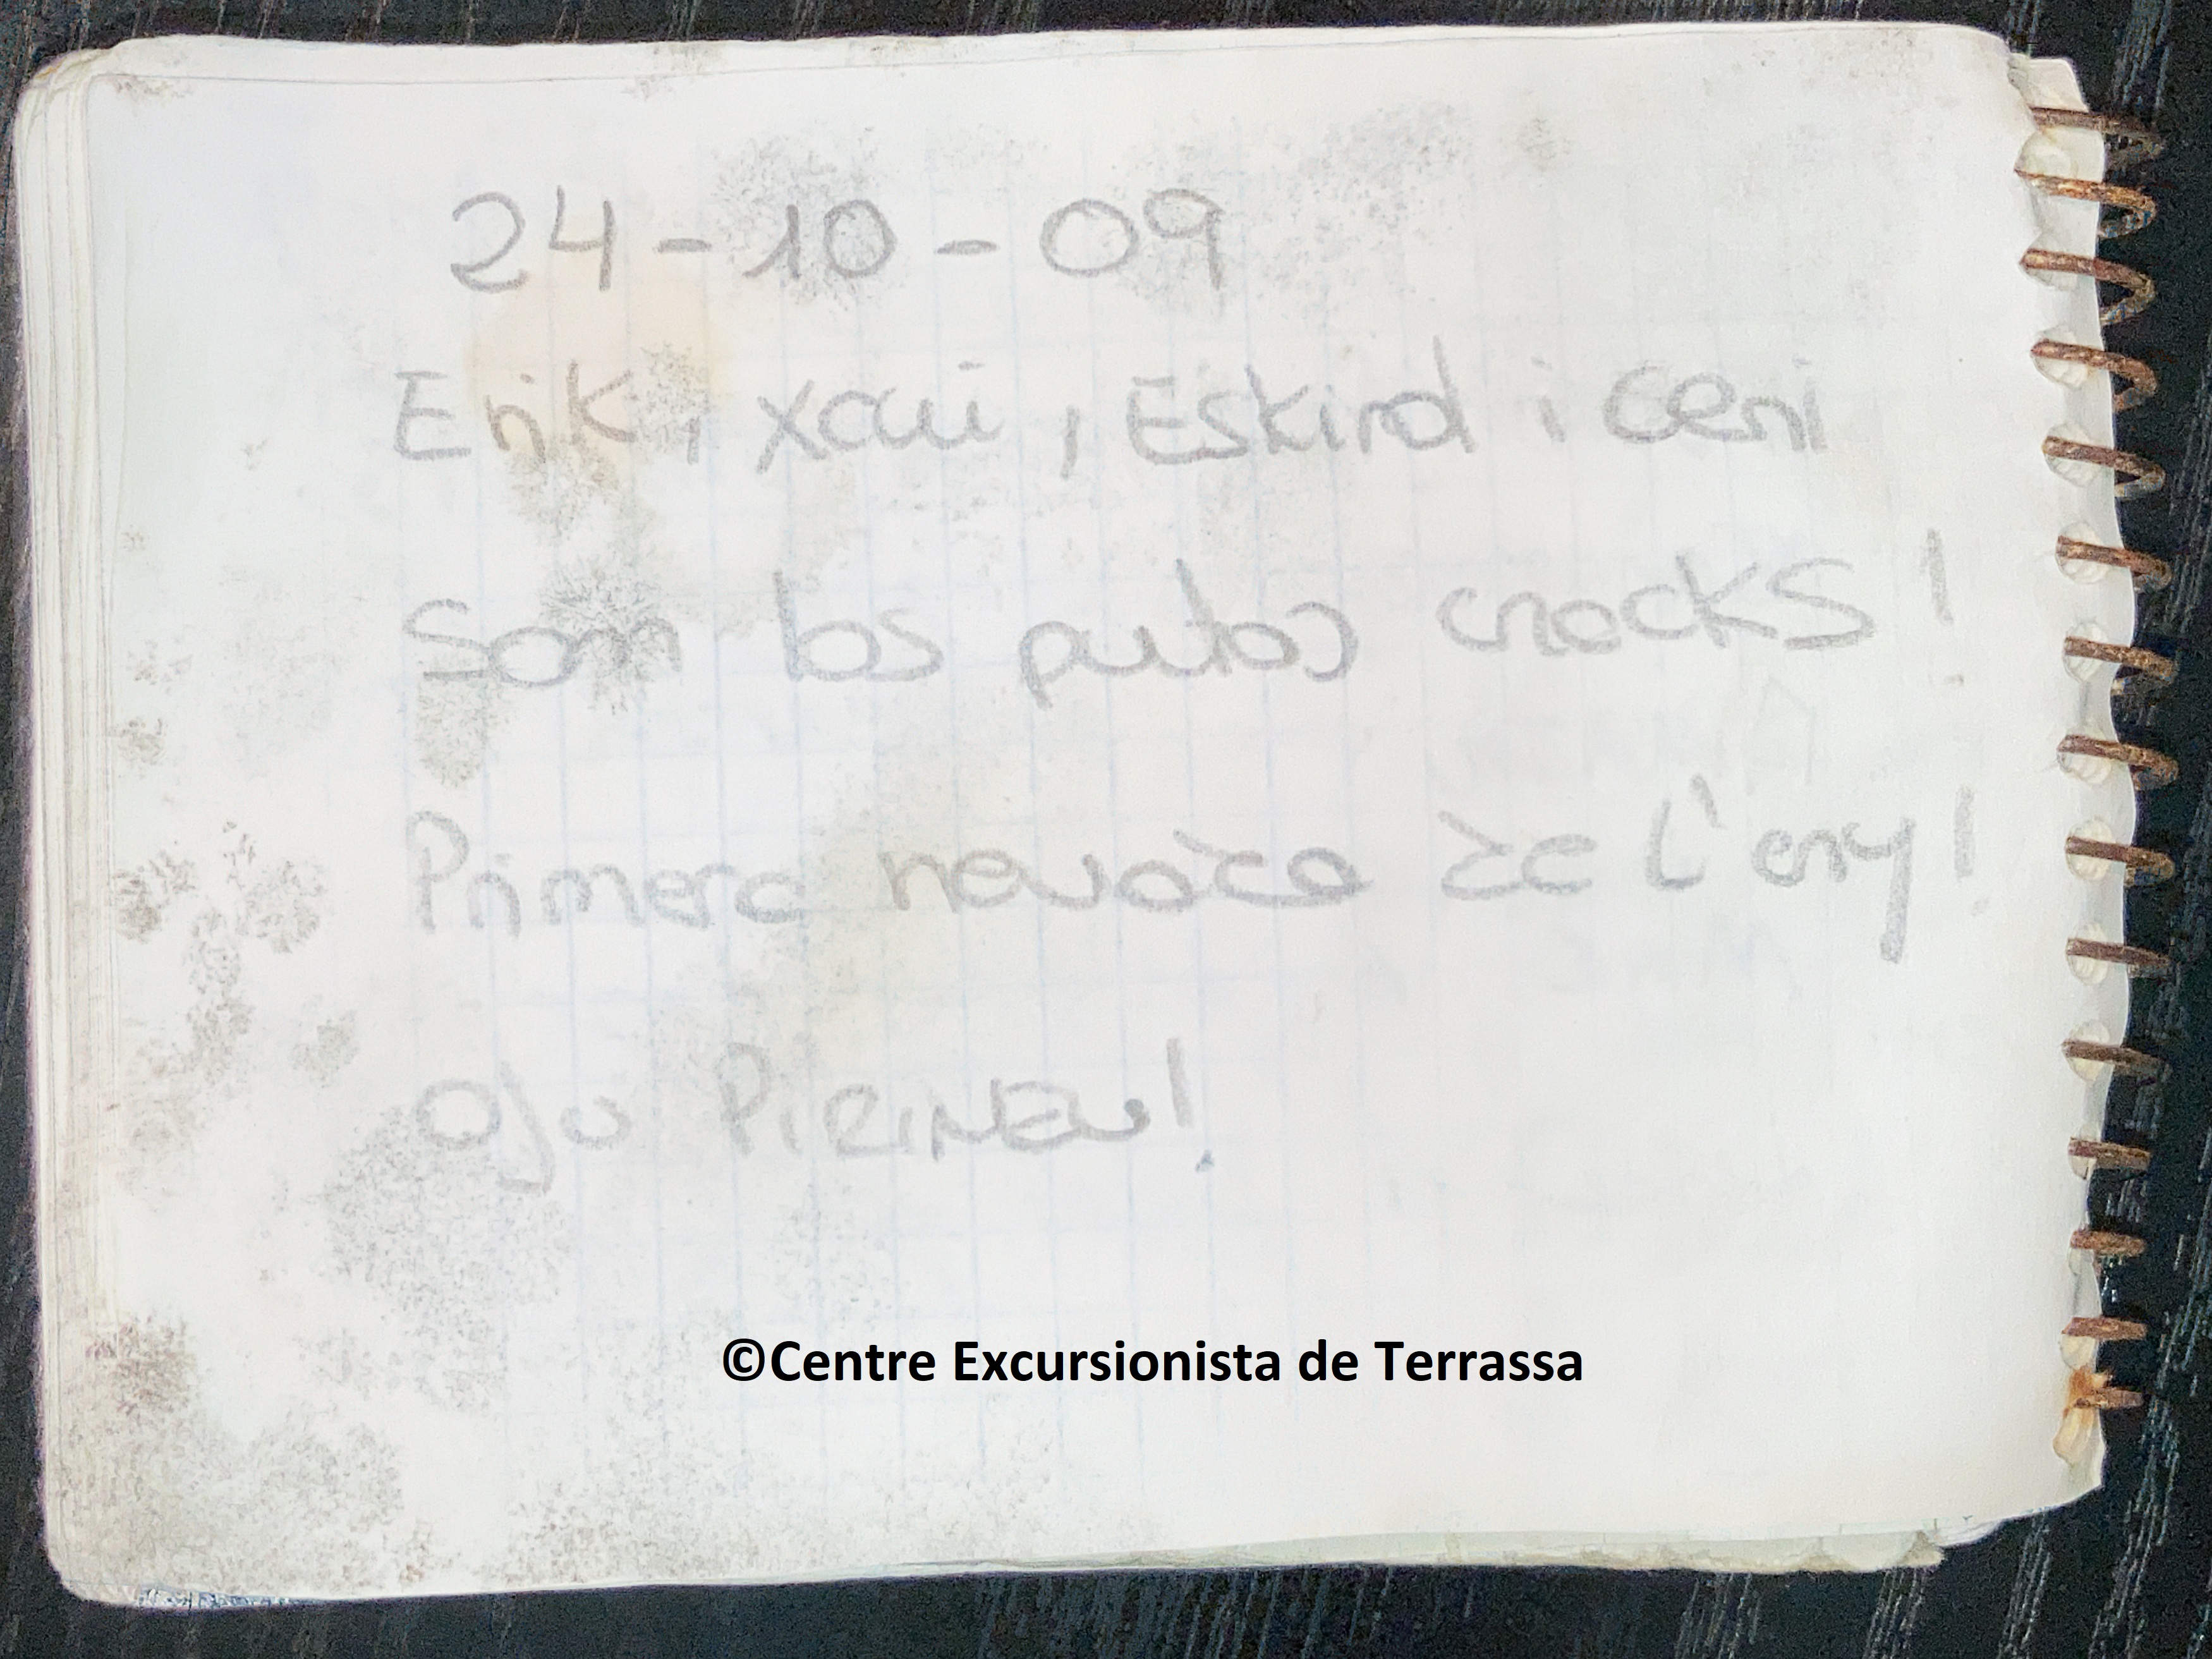 24-10-09
Erik, xavi, Eskirol i Ceni
Som los putos cracks!
Primera nevada de l'any!
Ojo PIRINEU!
©Centre Excursionista de Terrassa